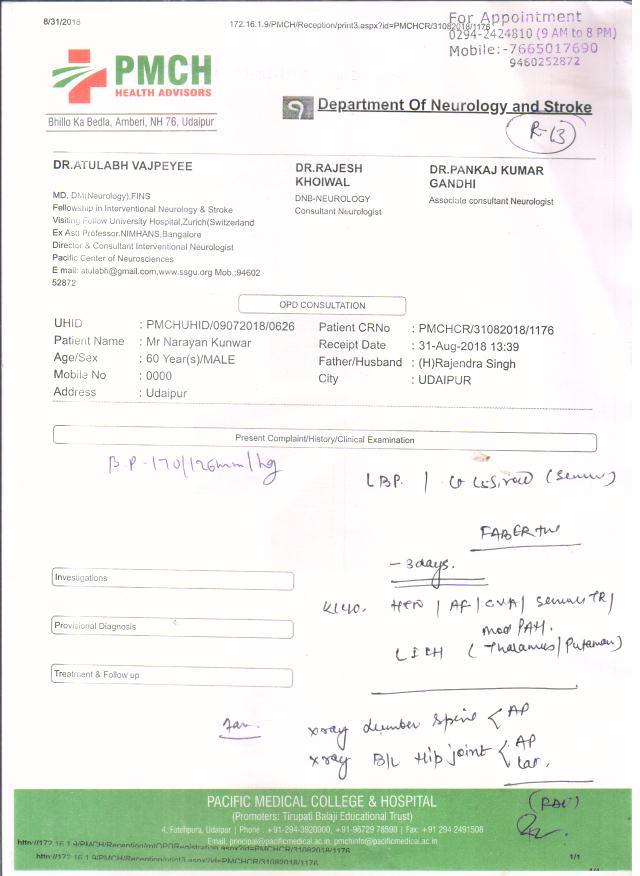 8/31/2018
172.16.1.9/PMCH/Reception/print3.aspx?id=PMCHCR/31082018/1176
For Appointment
0294-2424810 (9 AM to 8 PM)
Mobile:-7665017690
9460252872
PMCH
HEALTH ADVISORS
Bhillo Ka Bedla, Amberi, NH 76, Udaipur
Department Of Neurology and Stroke
R-13
DR.ATULABH VAJPEYEE
MD, DM(Neurology),FINS
Fellowship in Interventional Neurology & Stroke
Visiting Follow University Hospital,Zurich(Switzerland
Ex Astt Professor,NIMHANS,Bangalore
Director & Consultant Interventional Neurologist
Pacific Center of Neurosciences
E mail: atulabh@gmail.com,www.ssgu.org Mob.:94602
52872
DR.RAJESH
KHOIWAL
DNB-NEUROLOGY
Consultant Neurologist
DR.PANKAJ KUMAR
GANDHI
Associate consultant Neurologist
OPD CONSULTATION
UHID : PMCHUHID/09072018/0626
Patient Name : Mr Narayan Kunwar
Age/Sex : 60 Year(s)/MALE
Mobile No : 0000
Address : Udaipur
Patient CRNo : PMCHCR/31082018/1176
Receipt Date : 31-Aug-2018 13:39
Father/Husband : (H)Rajendra Singh
City : UDAIPUR
Present Complaint/History/Clinical Examination
B.P-170/126mm/hg
LBP /
FABER +ve
- 3days.
Investigations
K/C/O. HTN / AF / CVA / Severe TR /
mod PAH.
Provisional Diagnosis
L ICH (Thalamus/Putamen)
Treatment & Follow up
xray Lumber Spine < AP
xray B/L Hip joint < AP
Lat.
PACIFIC MEDICAL COLLEGE & HOSPITAL
(Promoters: Tirupati Balaji Educational Trust)
4, Fatehpura, Udaipur | Phone : +91-294-3920000, +91-96729 78590 | Fax: +91 294 2491508
Email: principal@pacificmedical.ac.in, pmchinfo@pacificmedical.ac.in
http://172.16.1.9/PMCH/Reception/mlOPDRegistration.aspx?id=PMCHCR/31082018/1176
http://172.16.1.9/PMCH/Reception/print3.aspx?id=PMCHCR/31082018/1176
1/1